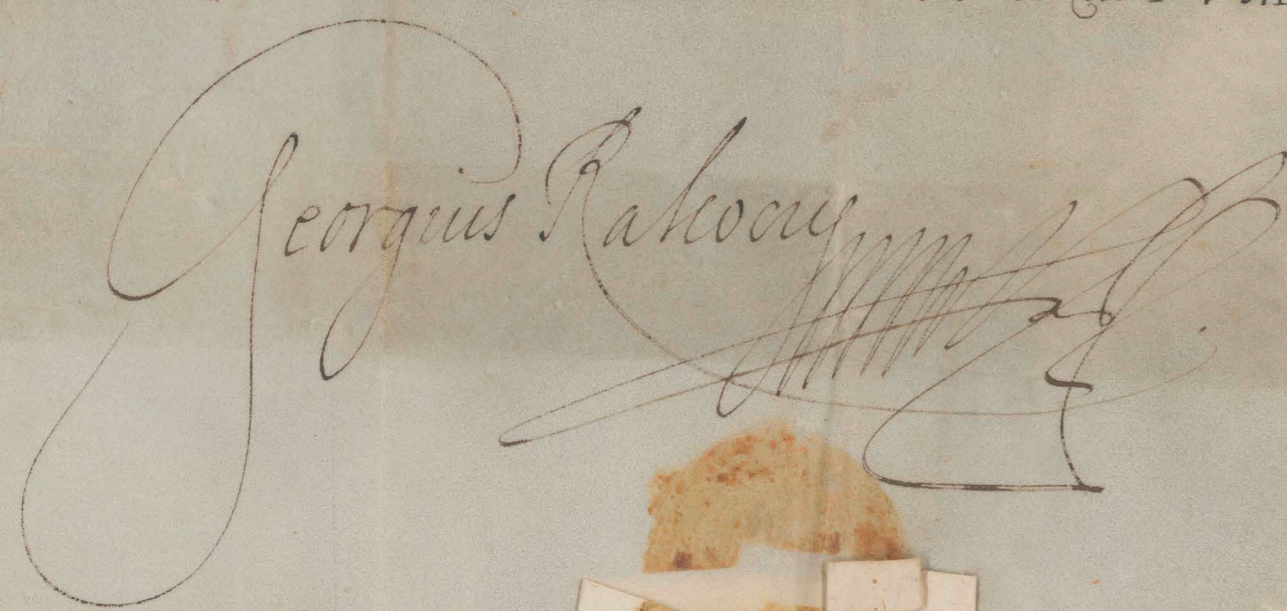 Georgius Rakocius